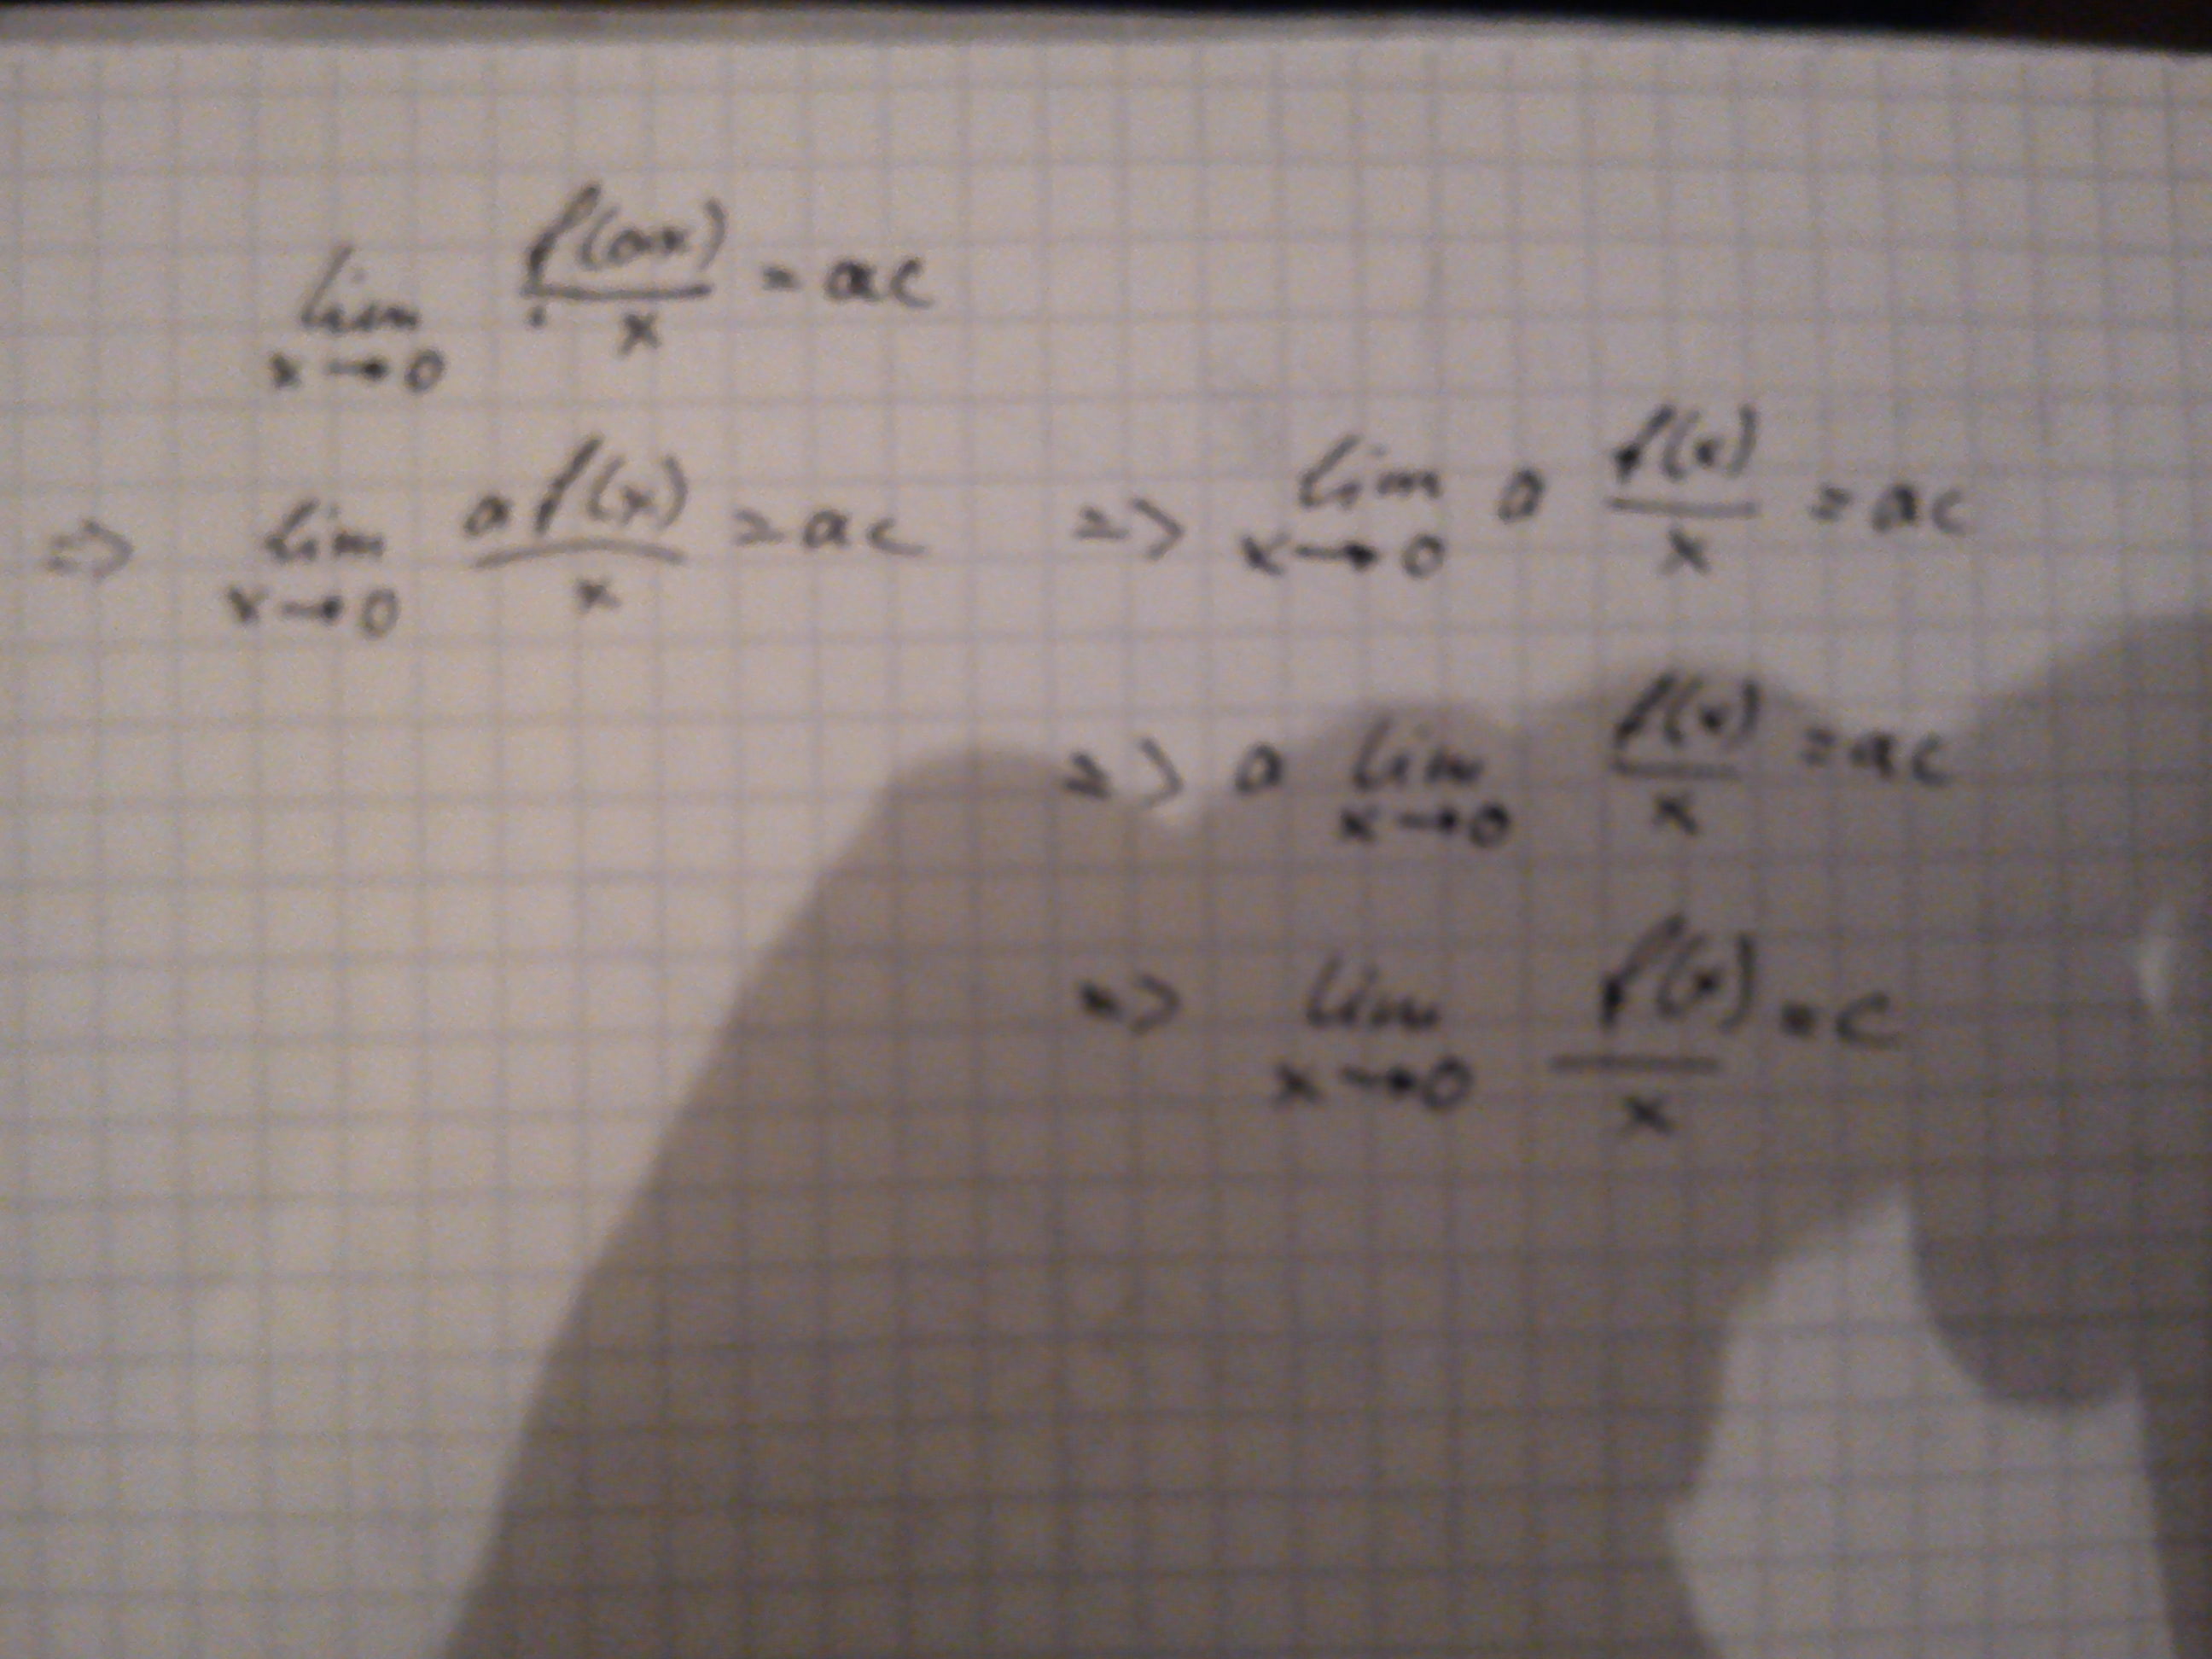 lim x→0 f(ax)/x = ac
=> lim x→0 a f(x)/x = ac => lim x→0 a f(x)/x = ac
=> a lim x→0 f(x)/x = ac
=> lim x→0 f(x)/x = c